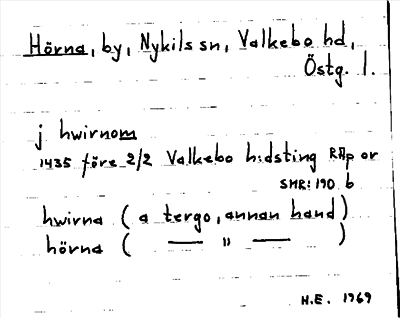 Hörna, by, Nykils sn, Valkebo hd,
Östg. l.
j hwirnom
1435 före 2/2 Valkebo h:dsting RAp or
SMR: 190 b
hwirna ( a tergo, annan hand )
hörna ( — " — )
H.E. 1969